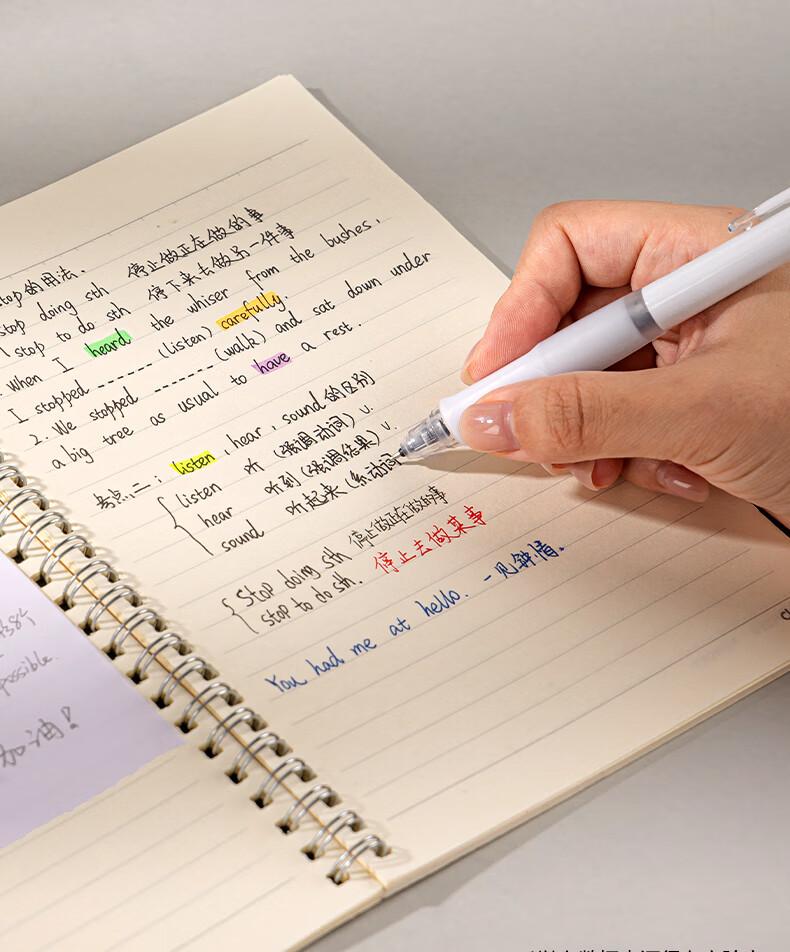 stop的用法.
stop doing sth 停止做正在做的事
stop to do sth 停下来去做另一件事
. When I heard the whiser from the bushes,
I stopped ------ (listen) carefully
2. We stopped ------ (walk) and sat down under
a big tree as usual to have a rest.
考点二: listen, hear, sound的区别
listen 听 (强调动词) v.
hear 听到 (强调结果) v.
sound 听起来 (系动词
Stop doing sth 停止做正在做的事
stop to do sth. 停止去做某事
You had me at hello. 一见钟情.
possible.
加油!